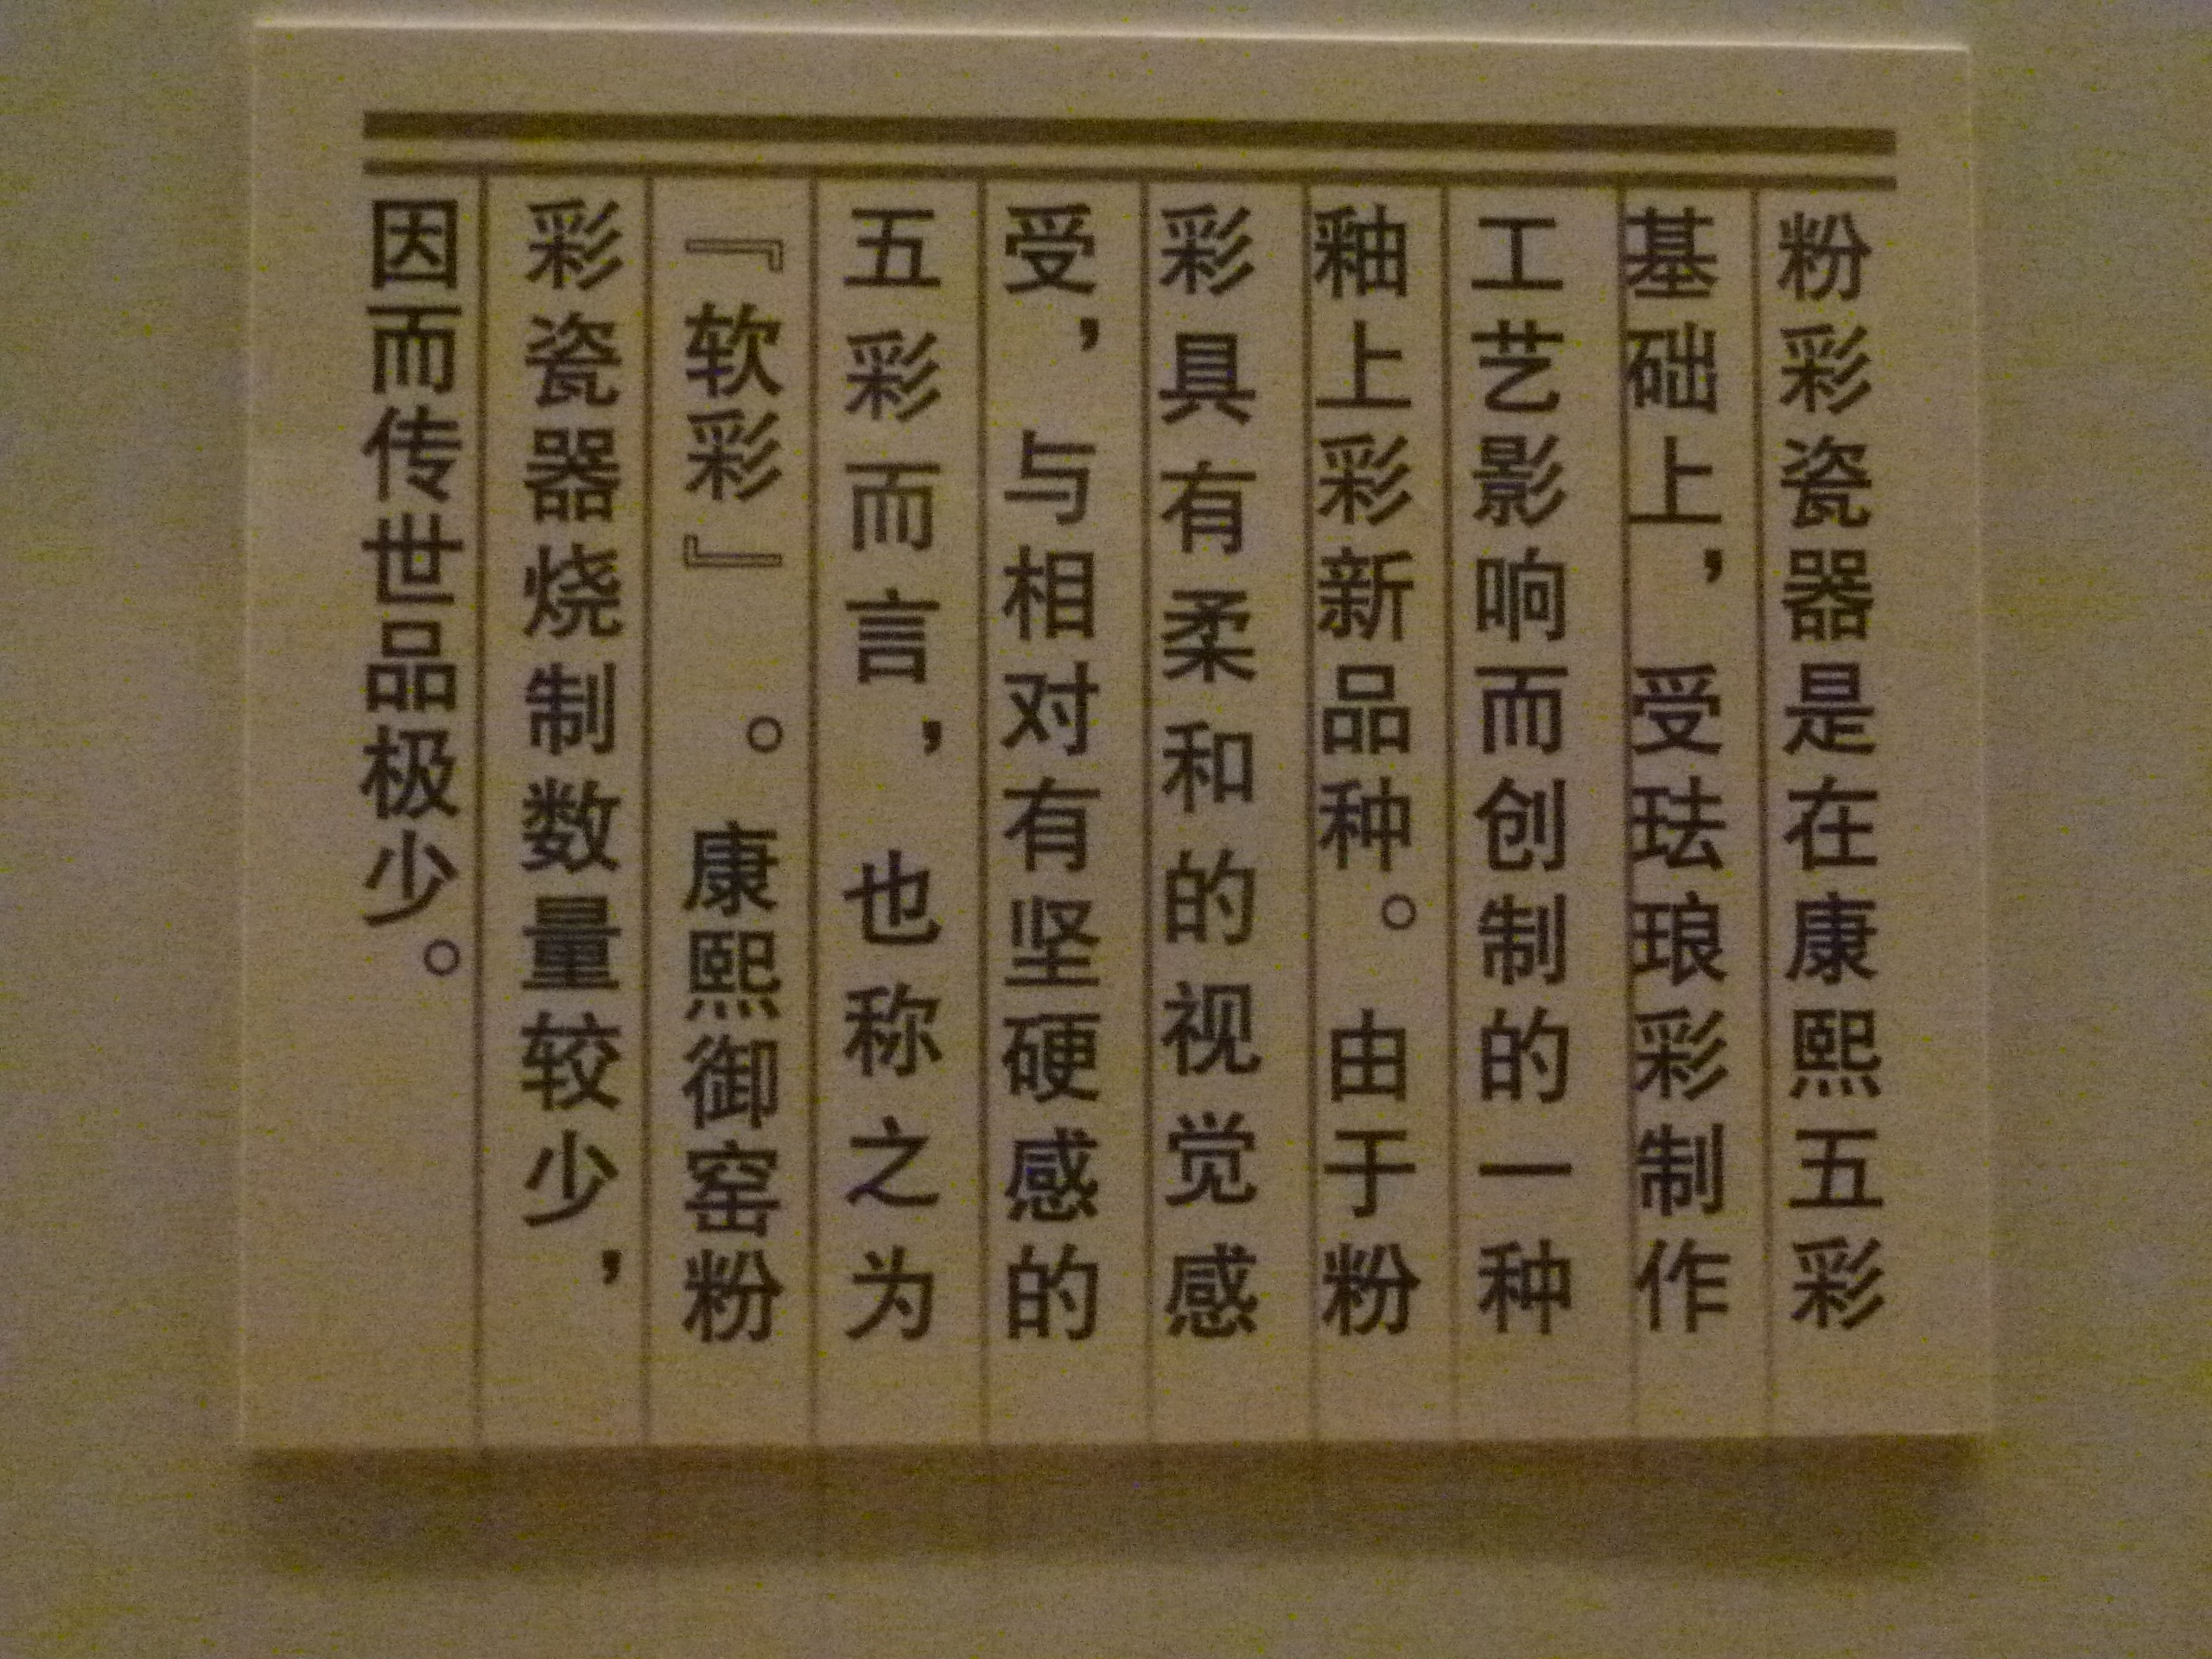 粉彩瓷器是在康熙五彩
基础上，受珐琅彩制作
工艺影响而创制的一种
釉上彩新品种。由于粉
彩具有柔和的视觉感
受，与相对有坚硬感的
五彩而言，也称之为
『软彩』。康熙御窑粉
彩瓷器烧制数量较少，
因而传世品极少。